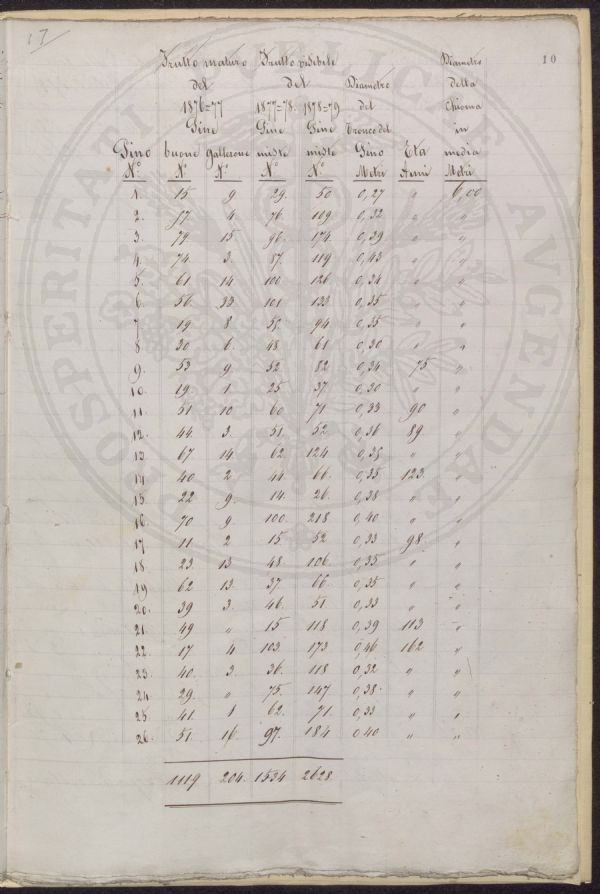 17
10
Frutto maturo Frutto visibile Diametro
del del Diametro della
1876=77 1877=78 1878=79 del Chioma
Pine Pine Pine Tronco del in
Pino buone galterone miste miste Pino Età media
N.° N.° N.° N.° N.° Metri Anni Metri
1. 15 9 29. 50 0,27 " 6,00
2. 77 4 76. 109 0,32 " "
3. 79 15 96. 174 0,39 " "
4. 74 3. 87. 119 0,43 " "
5. 61 14 100 126 0,34 " "
6. 56 33 101 133 0,35 " "
7. 19 8 57. 94 0,35 " "
8 30 6. 48. 61 0,30 " "
9. 53 9 52. 82 0,34 75 "
10. 19. 1 25 37. 0,30 " "
11. 51 10 60 71 0,33 90 "
12. 44. 3. 51. 52 0,36 89. "
13 67 14 62. 124 0,38 " "
14 40 2 44. 66. 0,35 123. "
15. 22 9. 14. 26. 0,38 " "
16. 70 9. 100. 218 0,40 " "
17 11 2 15 52 0,33 98. "
18 23 13 48. 106. 0,35 " "
19 62 13. 37 66. 0,35 " "
20. 39 3. 46. 51 0,33 " "
21. 49 " 15 118 0,39 113 "
22. 17 4 103 173 0,46 162 "
23. 40. 3. 36. 118 0,32 " "
24 29. " 75. 147 0,38. " "
25 41. 1 62. 71. 0,33 " "
26. 51. 16 97. 184 0,40 " "
1119 204. 1534 2628
PROSPERITATI PUBLICAE AVGENDAE